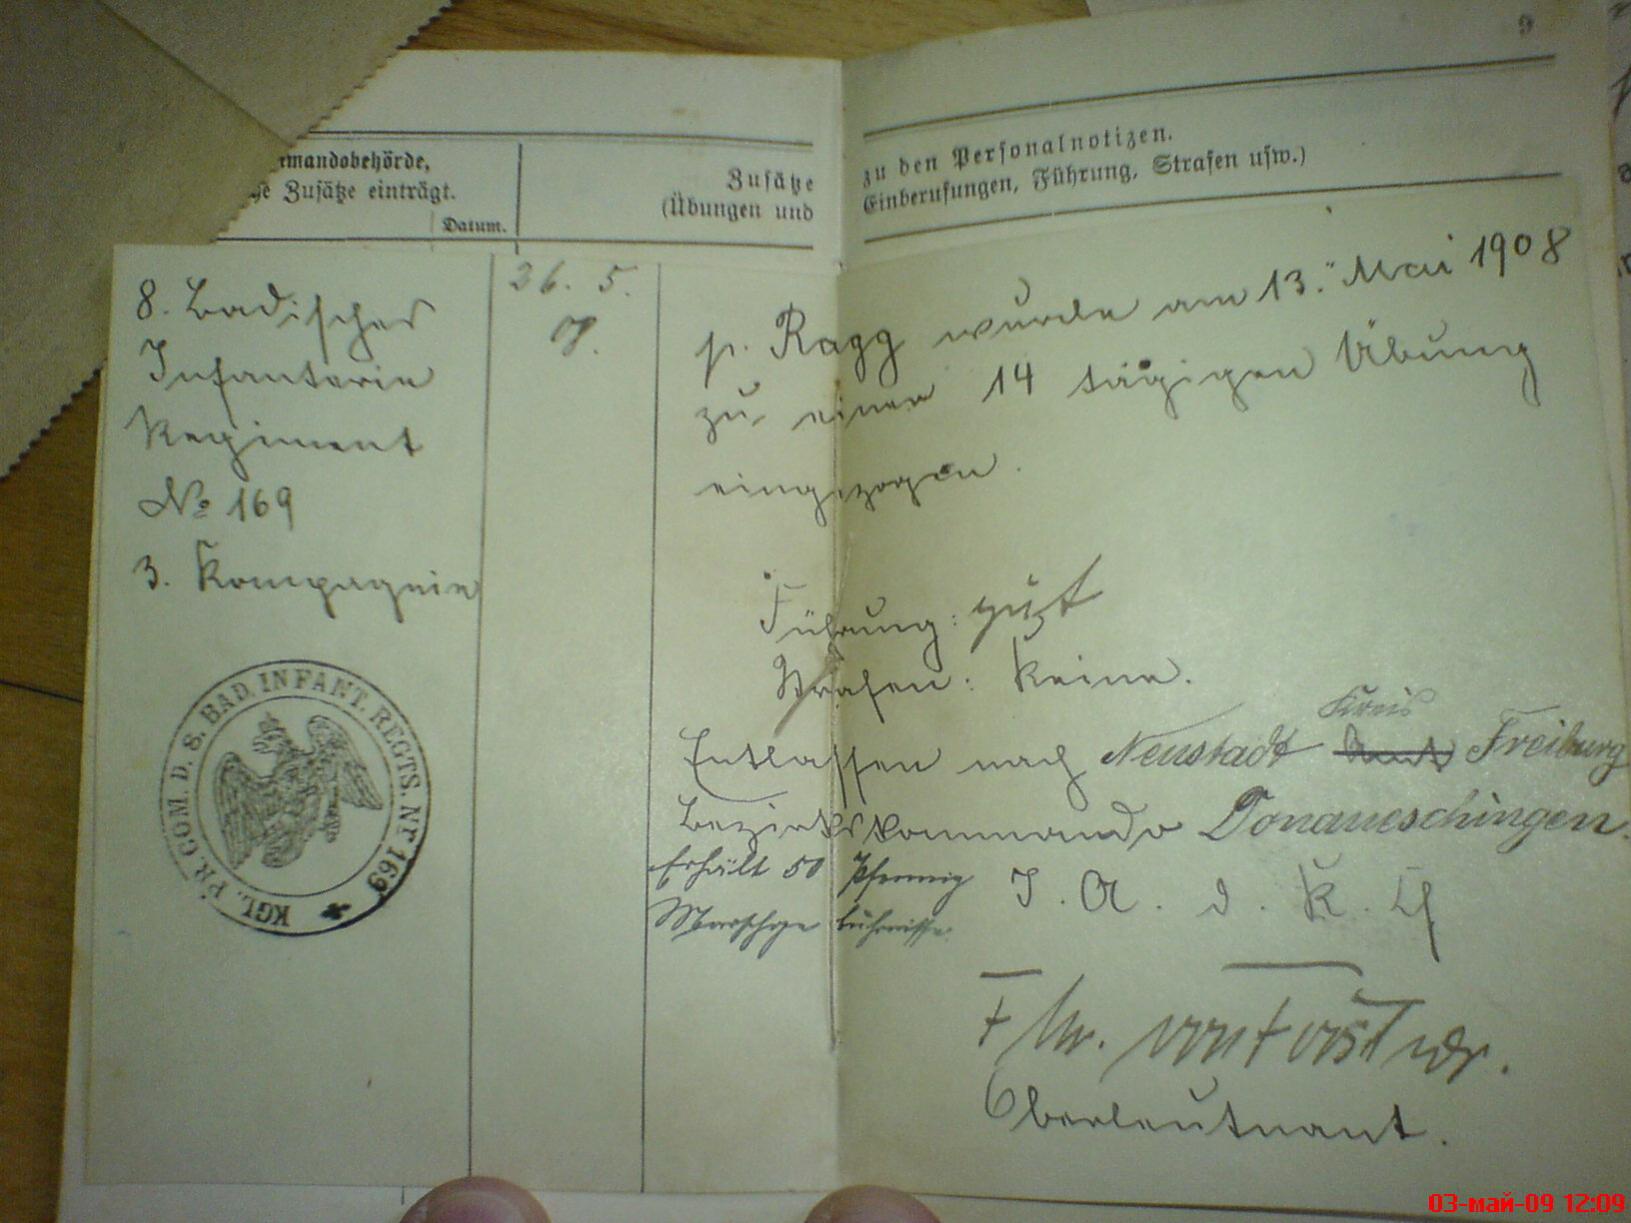 9
mandobehörde,
Zusätze einträgt.
Datum.
Zusätze
(Übungen und
zu den Personalnotizen.
Einberufungen, Führung, Strafen usw.)
8. Badisches
Infanterie
Regiment
No 169
3. Kompagnie
26. 5.
08.
p. Ragg wurde am 13. Mai 1908
zu einer 14 tägigen Übung
eingezogen.
Führung: gut
Strafen: Keine.
Kreis
Entlassen nach Neustadt Amt Freiburg
Bezirkskommando Donaueschingen.
Erhält 50 Pfennig
Marschgebührnisse.
I. A. d. K. Ch
Frhr. von Forstner.
Oberleutnant.
KGL. PR. COM. D. 8. BAD. INFANT. REGTS. Nr. 169
03-май-09 12:09